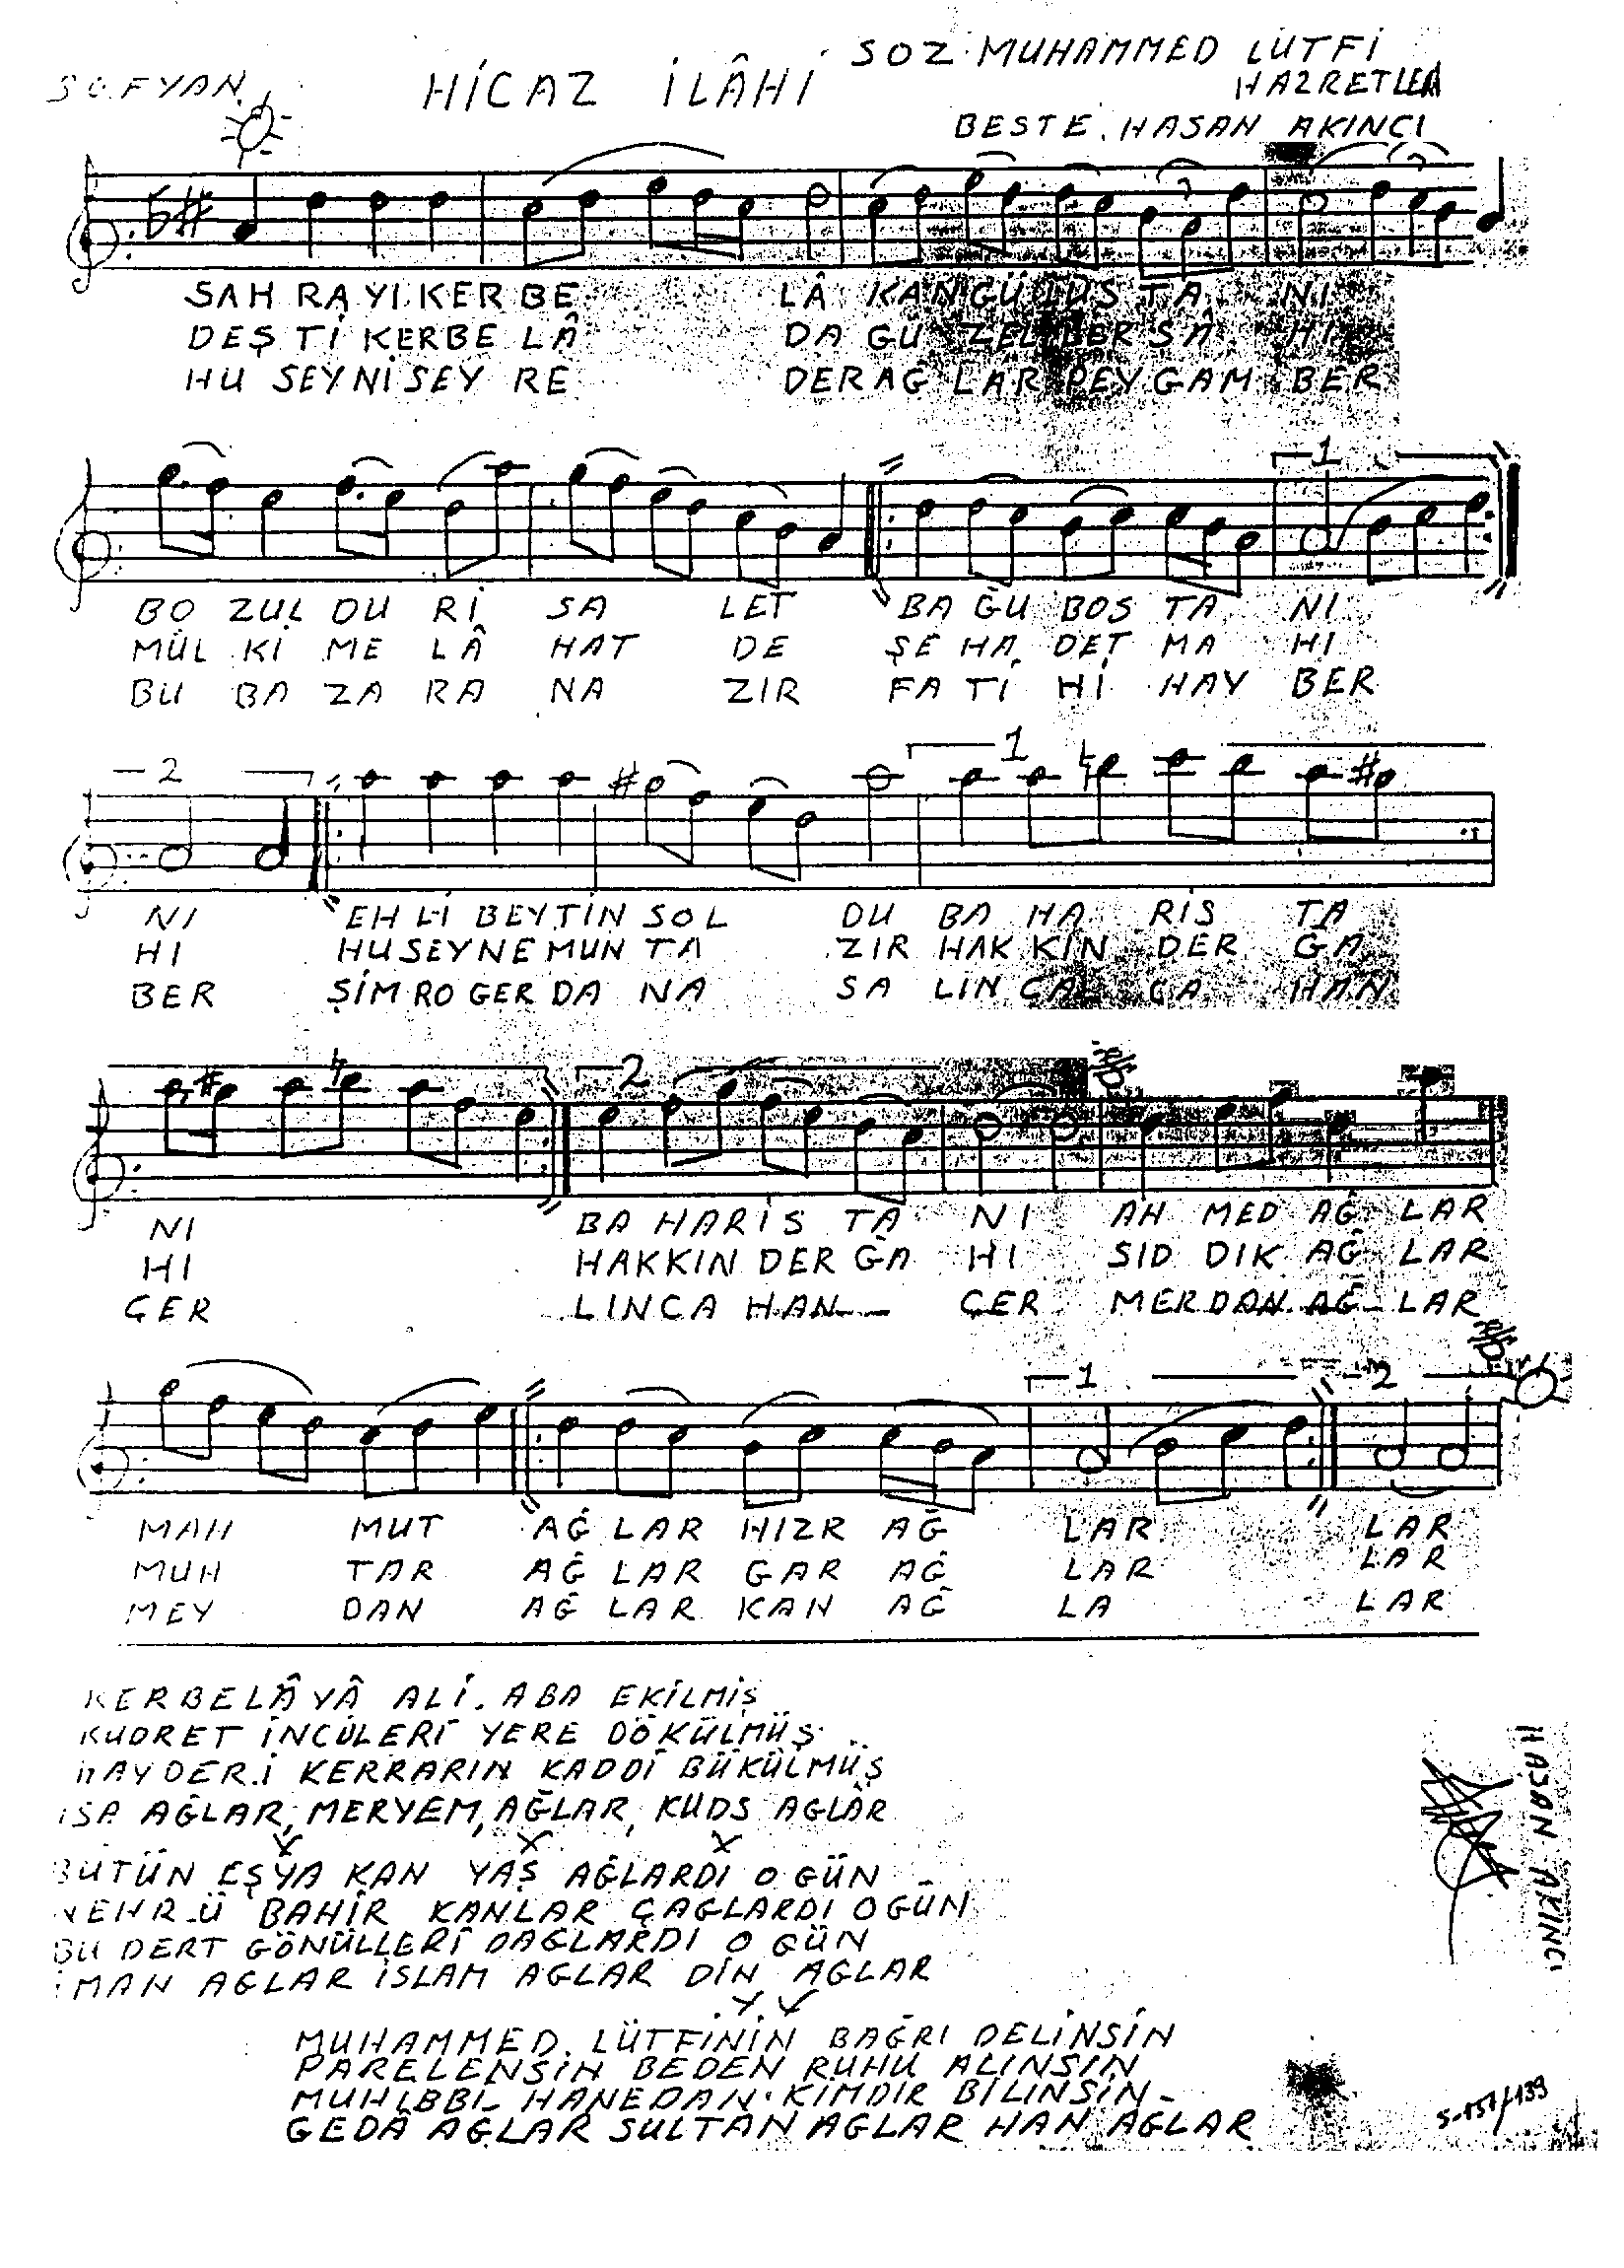 SOFYAN
HİCAZ İLÂHİ
SOZ. MUHAMMED LÜTFİ
HAZRETLERİ
BESTE. HASAN AKINCI
SAH RA YI KER BE LÂ KAN GÜ LUS TA NI
DEŞ Tİ KERBE LÂ DA GU ZEL LER SÂ HI
HU SEYNİ SEY RE DER AĞ LAR PEY GAM BER
1
BO ZUL DU Rİ SA LET BA ĞU BOS TA NI
MÜL Kİ ME LÂ HAT DE ŞE HA DET MA HI
BU BA ZA RA NA ZIR FA Tİ Hİ HAY BER
2 1
NI EH Lİ BEYTİN SOL DU BA HA RİS TA
HI HUSEYNE MUN TA ZIR HAK KIN DER GA
BER ŞİM RO GER DA NA SA LIN ÇAL GA HAN
2
NI BA HARİS TA NI AH MED AĞ LAR
HI HAKKIN DER ĞA HI SID DIK AĞ LAR
ÇER LINCA HAN ÇER MERDAN AĞ LAR
1 2
MAH MUT AĞ LAR HIZR AĞ LAR LAR
MUH TAR AĞ LAR GAR AĞ LAR LAR
MEY DAN AĞ LAR KAN AĞ LA LAR
KERBELÂYÂ ALİ. ABA EKİLMİŞ
KUDRET İNCÜLERİ YERE DÖKÜLMÜŞ
HAYDER.İ KERRARIN KADDİ BÜKÜLMÜŞ
İSA AĞLAR, MERYEM, AĞLAR, KUDS AGLAR
BUTÜN EŞYA KAN YAŞ AĞLARDI O GÜN
NEHR-Ü BAHİR KANLAR ÇAGLARDI O GÜN
BU DERT GÖNÜLLERİ DAGLARDI O GÜN
İMAN AGLAR İSLAM AGLAR DİN AGLAR
MUHAMMED. LÜTFİNİN BAĞRI DELİNSİN
PARELENSİN BEDEN RUHU ALINSIN
MUHIBBI HANEDAN KİMDIR BİLINSİN
GEDÂ AGLAR SULTAN AGLAR HAN AGLAR
HASAN AKINCI
S-151/139